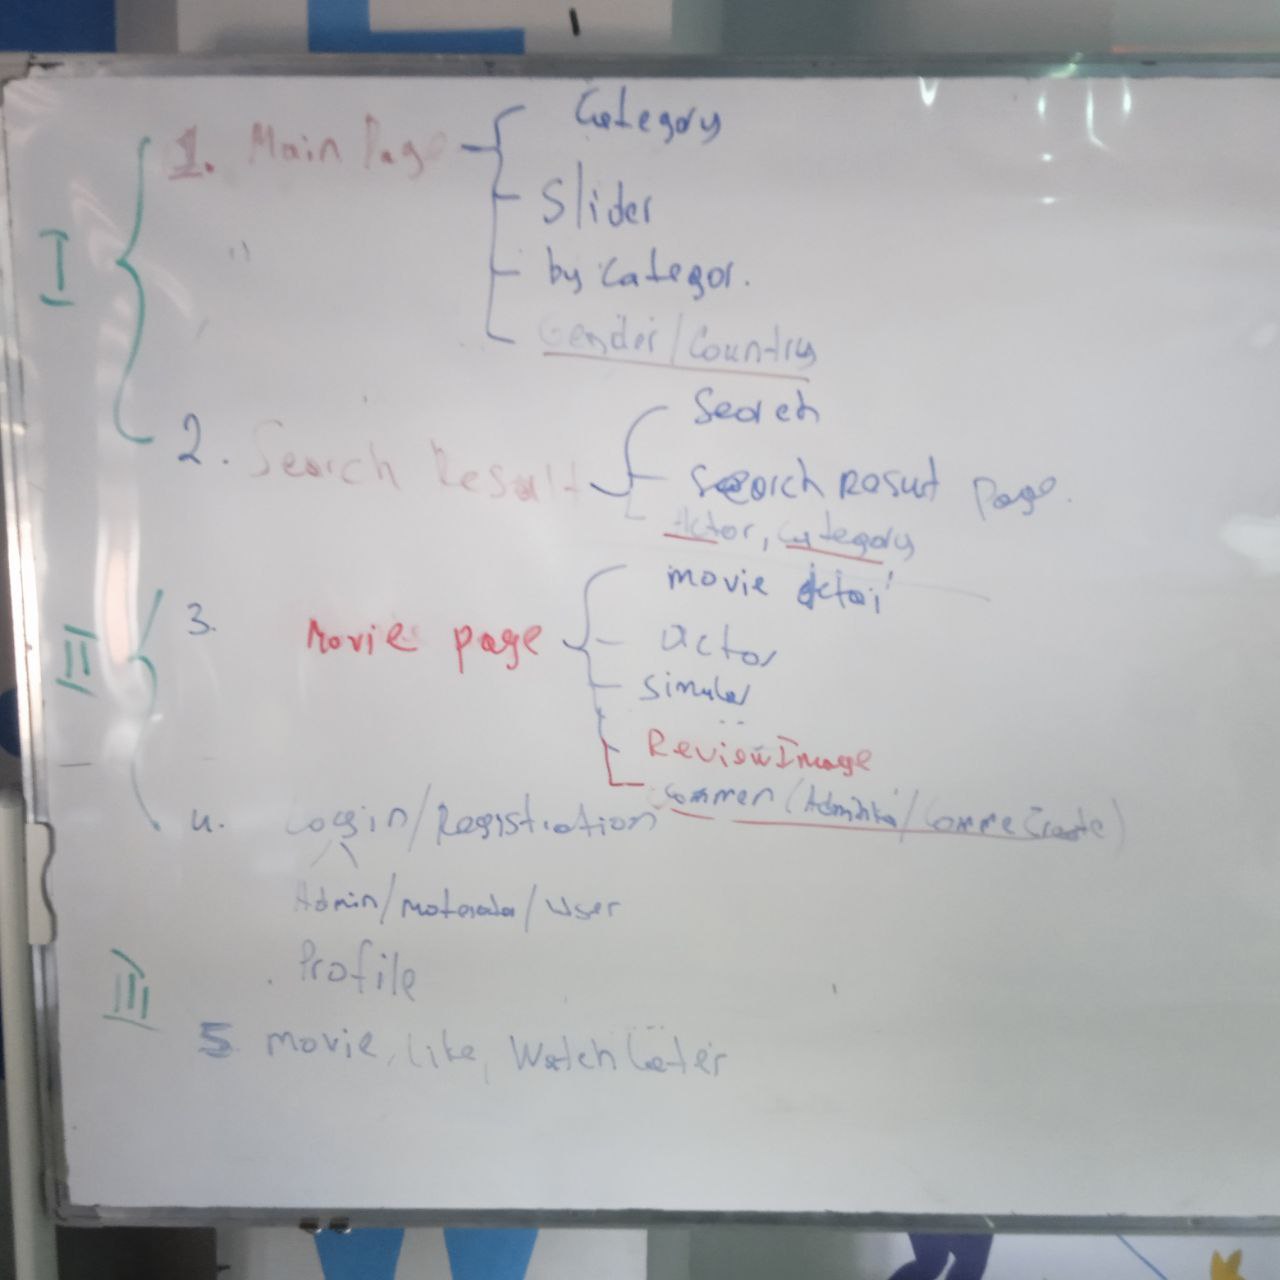 I
1. Main Page
Category
Slider
by Categor.
Gender/Country
2. Search Result
Search
Search Resut Page.
Actor, Category
II
3. Movie page
movie detai
actor
Simular
Review Image
Commen (Adminka/Comme Create)
4. Login/Registration
Admin/moterata/User
. Profile
III
5 movie, like, Watch Later